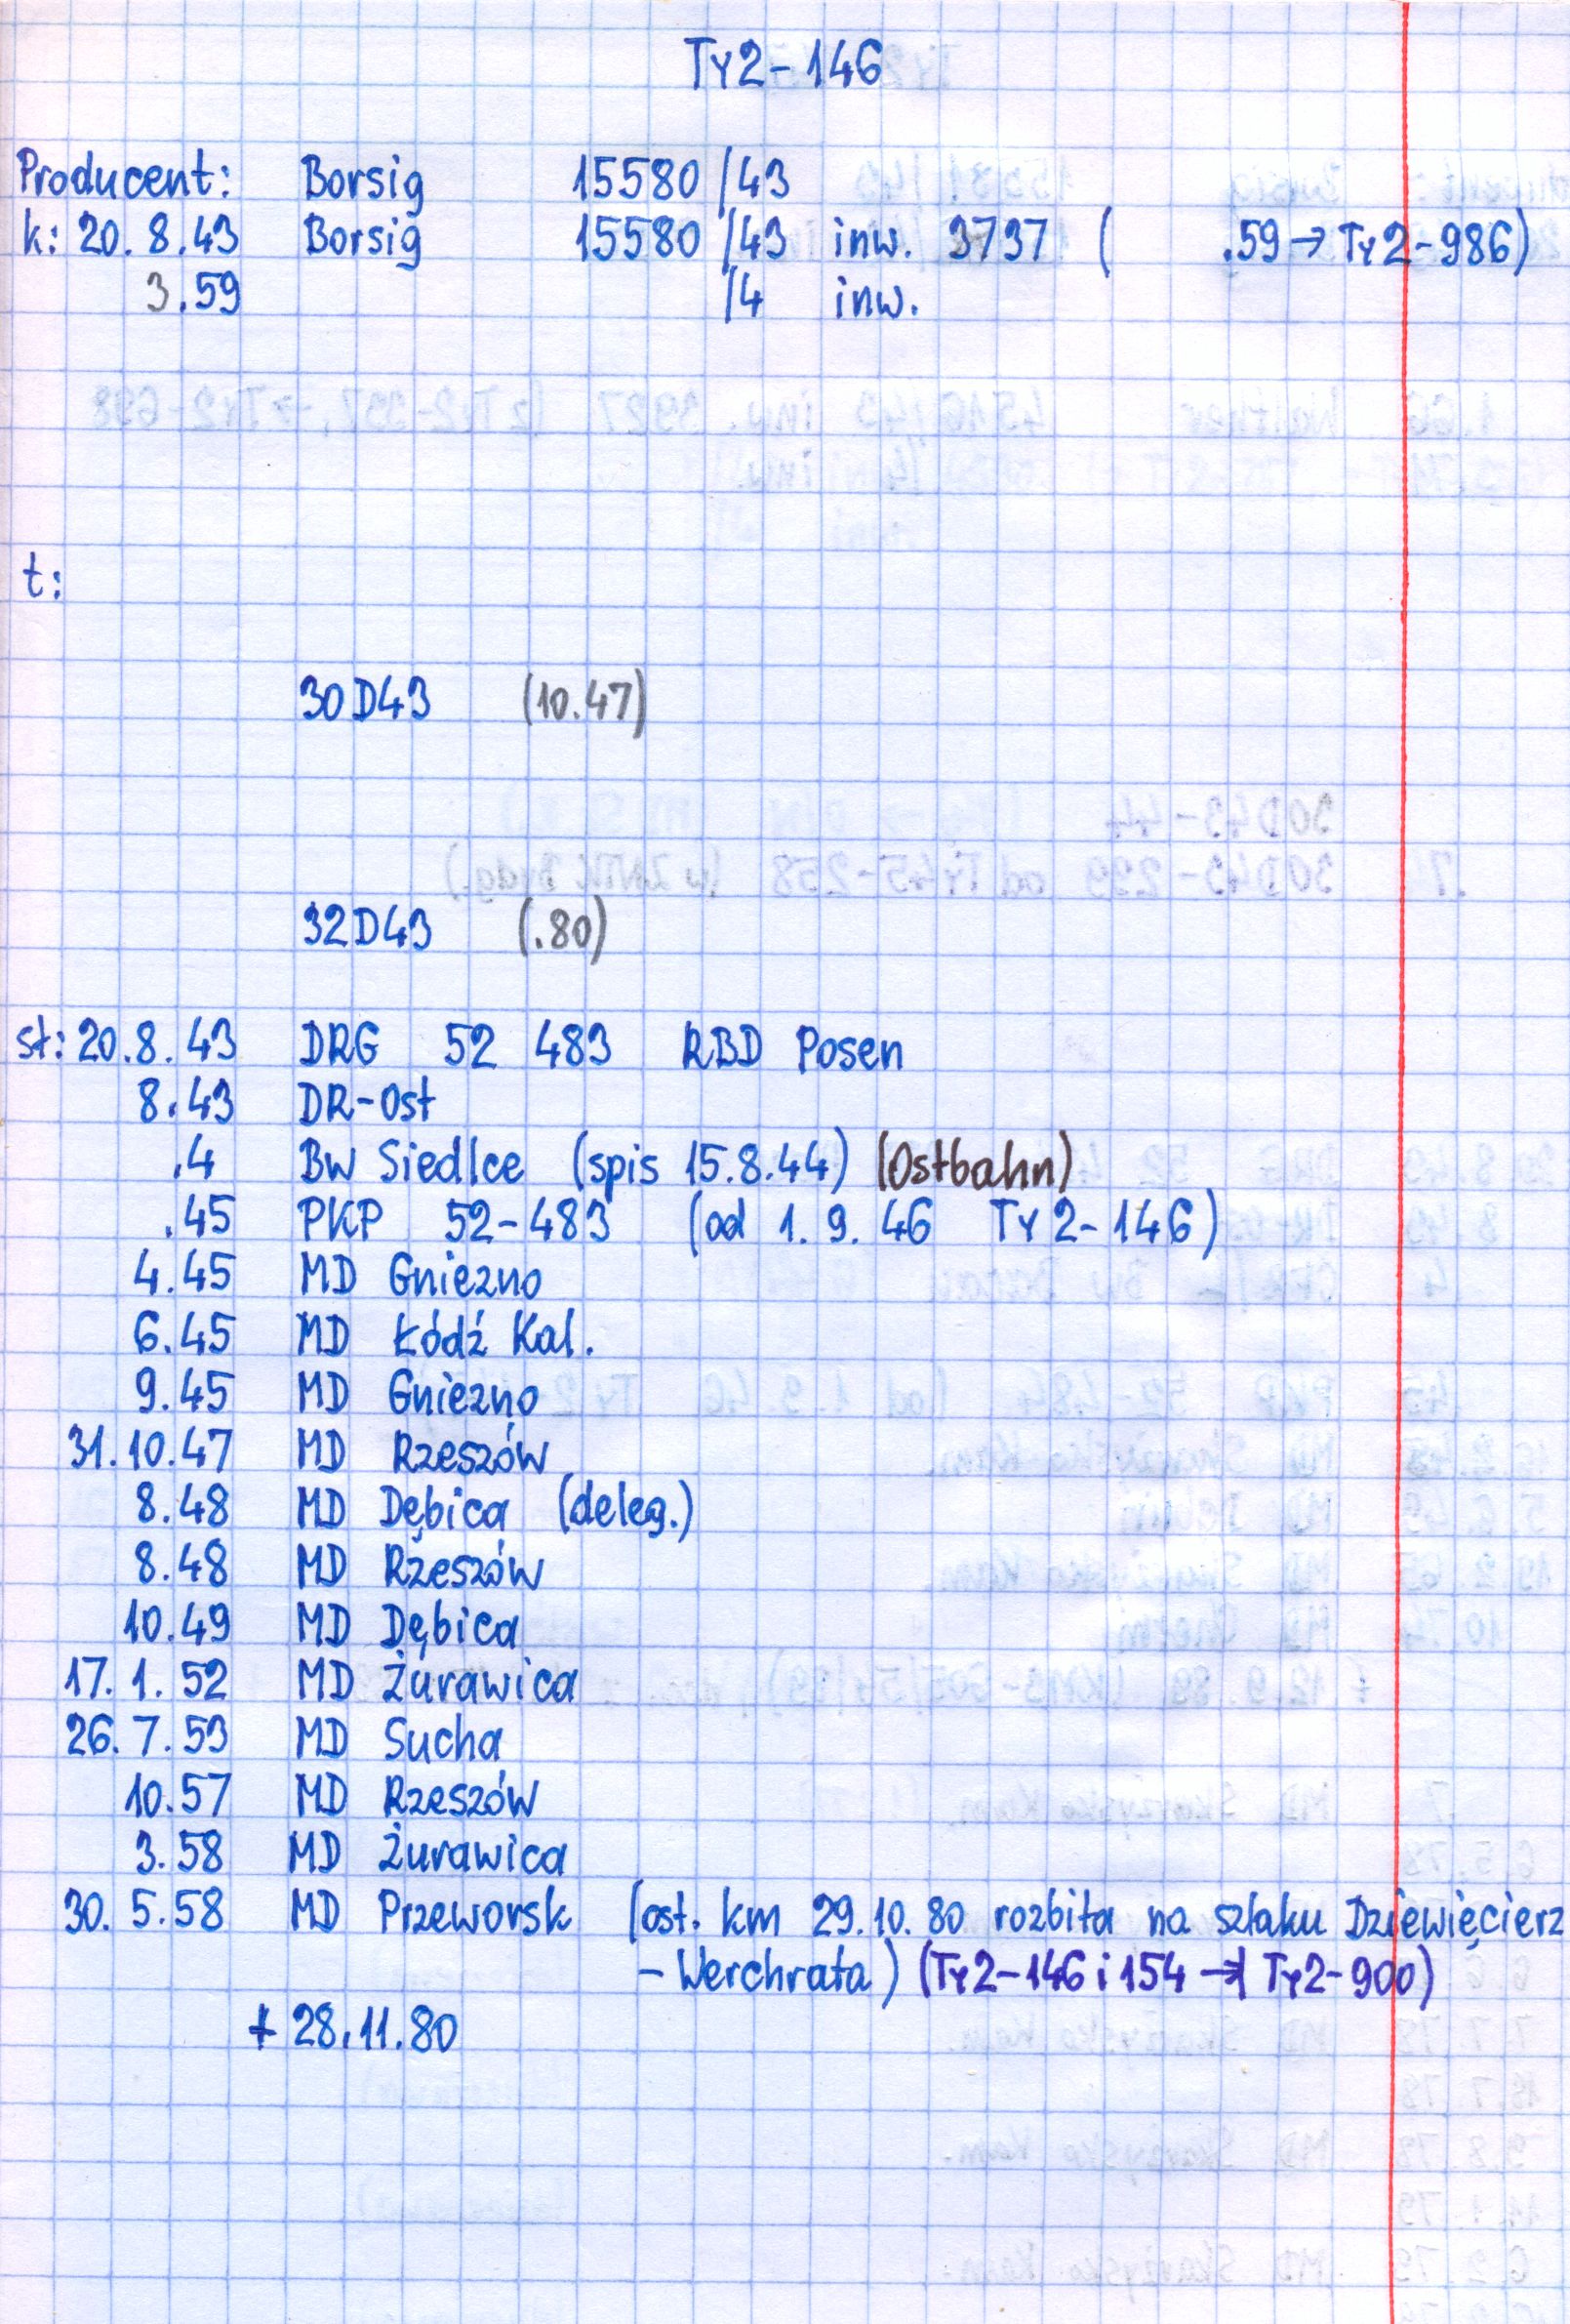 Ty2-146
Producent: Borsig 15580 /43
k: 20. 8.43 Borsig 15580 /43 inw. 3737 ( .59 → Ty2-986)
3.59 /4 inw.
t:
30D43 (10.47)
32D43 (.80)
st: 20.8.43 DRG 52 483 RBD Posen
8.43 DR-Ost
.4 Bw Siedlce (spis 15.8.44) (Ostbahn)
.45 PKP 52-483 (od 1. 9. 46 Ty2-146)
4.45 MD Gniezno
6.45 MD Łódź Kal.
9.45 MD Gniezno
31.10.47 MD Rzeszów
8.48 MD Dębica (deleg.)
8.48 MD Rzeszów
10.49 MD Dębica
17. 1. 52 MD Żurawica
26. 7. 53 MD Sucha
10.57 MD Rzeszów
3.58 MD Żurawica
30. 5.58 MD Przeworsk (ost. km 29.10.80 rozbita na szlaku Dziewięcierz
- Werchrata) (Ty2-146 i 154 →| Ty2-900)
+ 28.11.80